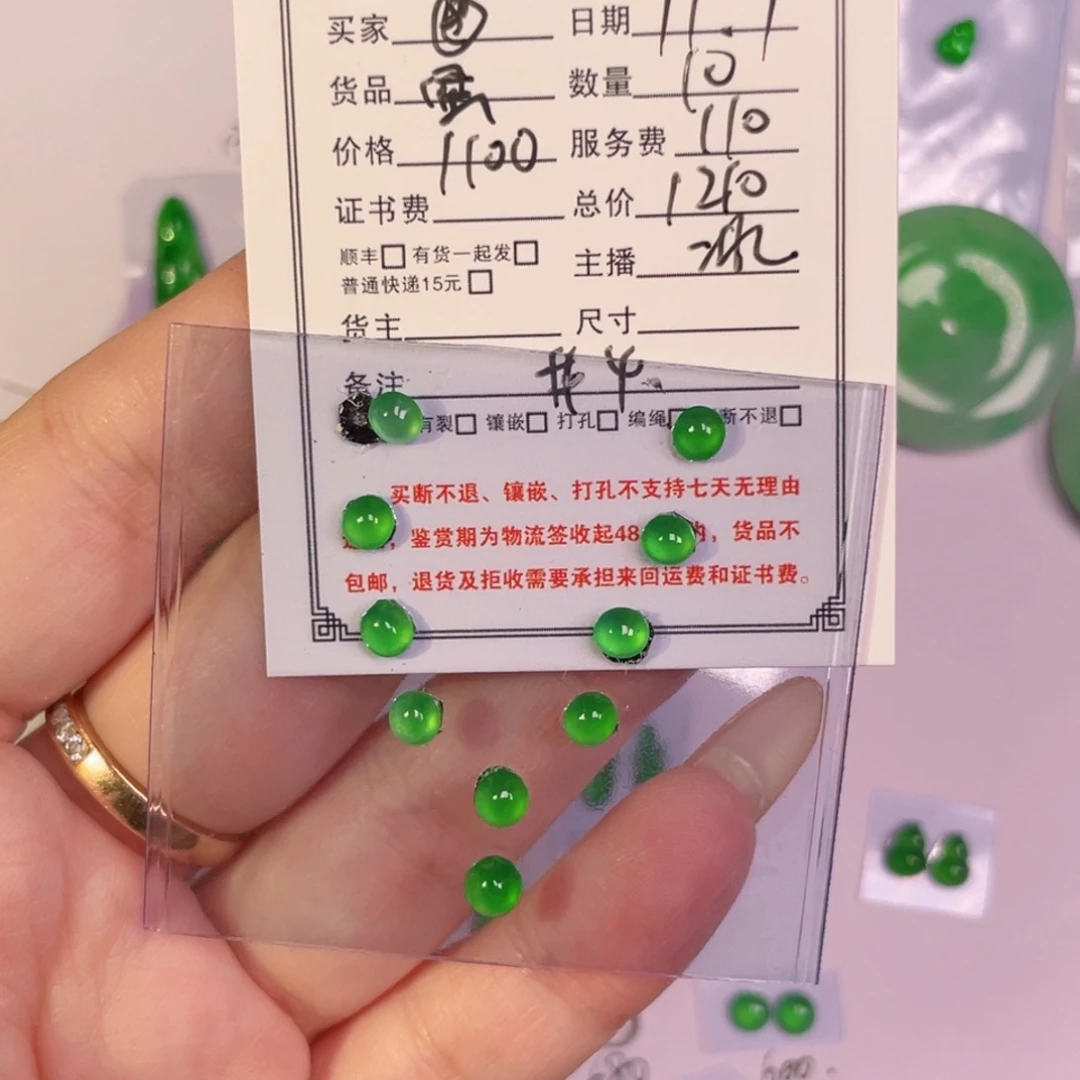 买家 日期
货品 数量 10
价格 1100 服务费 110
证书费 总价 1210
顺丰 有货一起发 主播
普通快递15元
货主 尺寸
备注
有裂 镶嵌 打孔 编绳 断不退
买断不退、镶嵌、打孔不支持七天无理由
，鉴赏期为物流签收起48 ，货品不
包邮，退货及拒收需要承担来回运费和证书费。